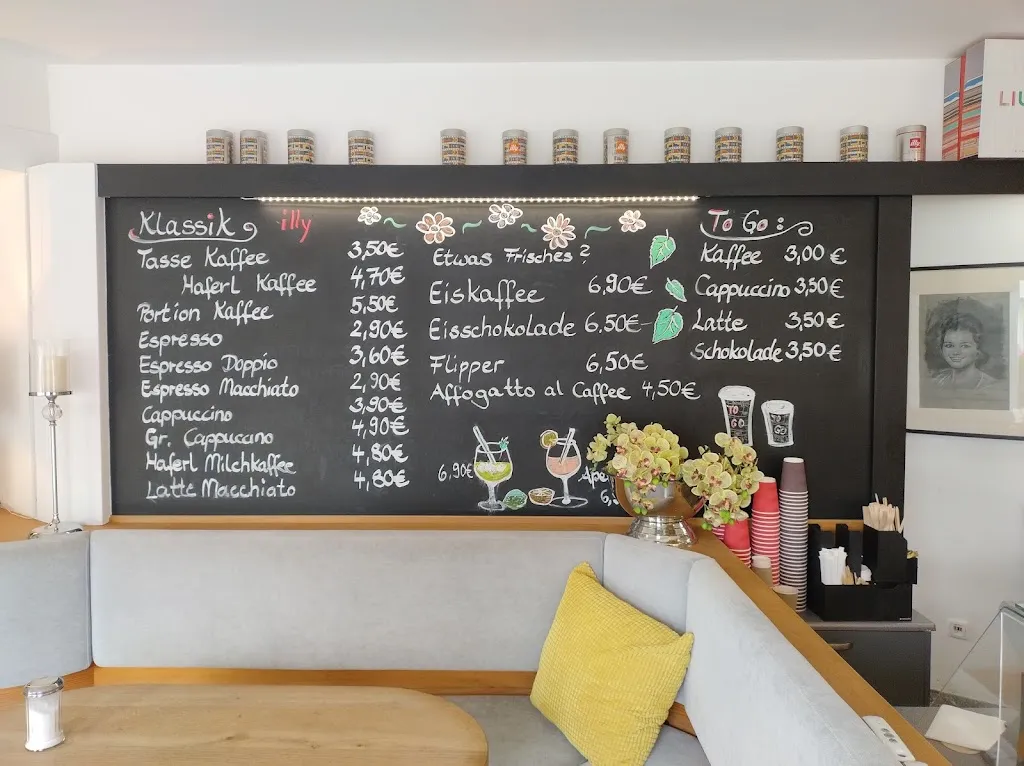 Klassik illy
Tasse Kaffee 3,50€
Haferl Kaffee 4,70€
Portion Kaffee 5,50€
Espresso 2,90€
Espresso Doppio 3,60€
Espresso Macchiato 2,90€
Cappuccino 3,90€
Gr. Cappuccino 4,90€
Haferl Milchkaffee 4,80€
Latte Macchiato 4,80€
Etwas Frisches?
Eiskaffee 6,90€
Eisschokolade 6.50€
Flipper 6,50€
Affogatto al Caffee 4,50€
6,90€
To Go:
Kaffee 3,00€
Cappuccino 3,50€
Latte 3,50€
Schokolade 3,50€
TO GO
TO GO